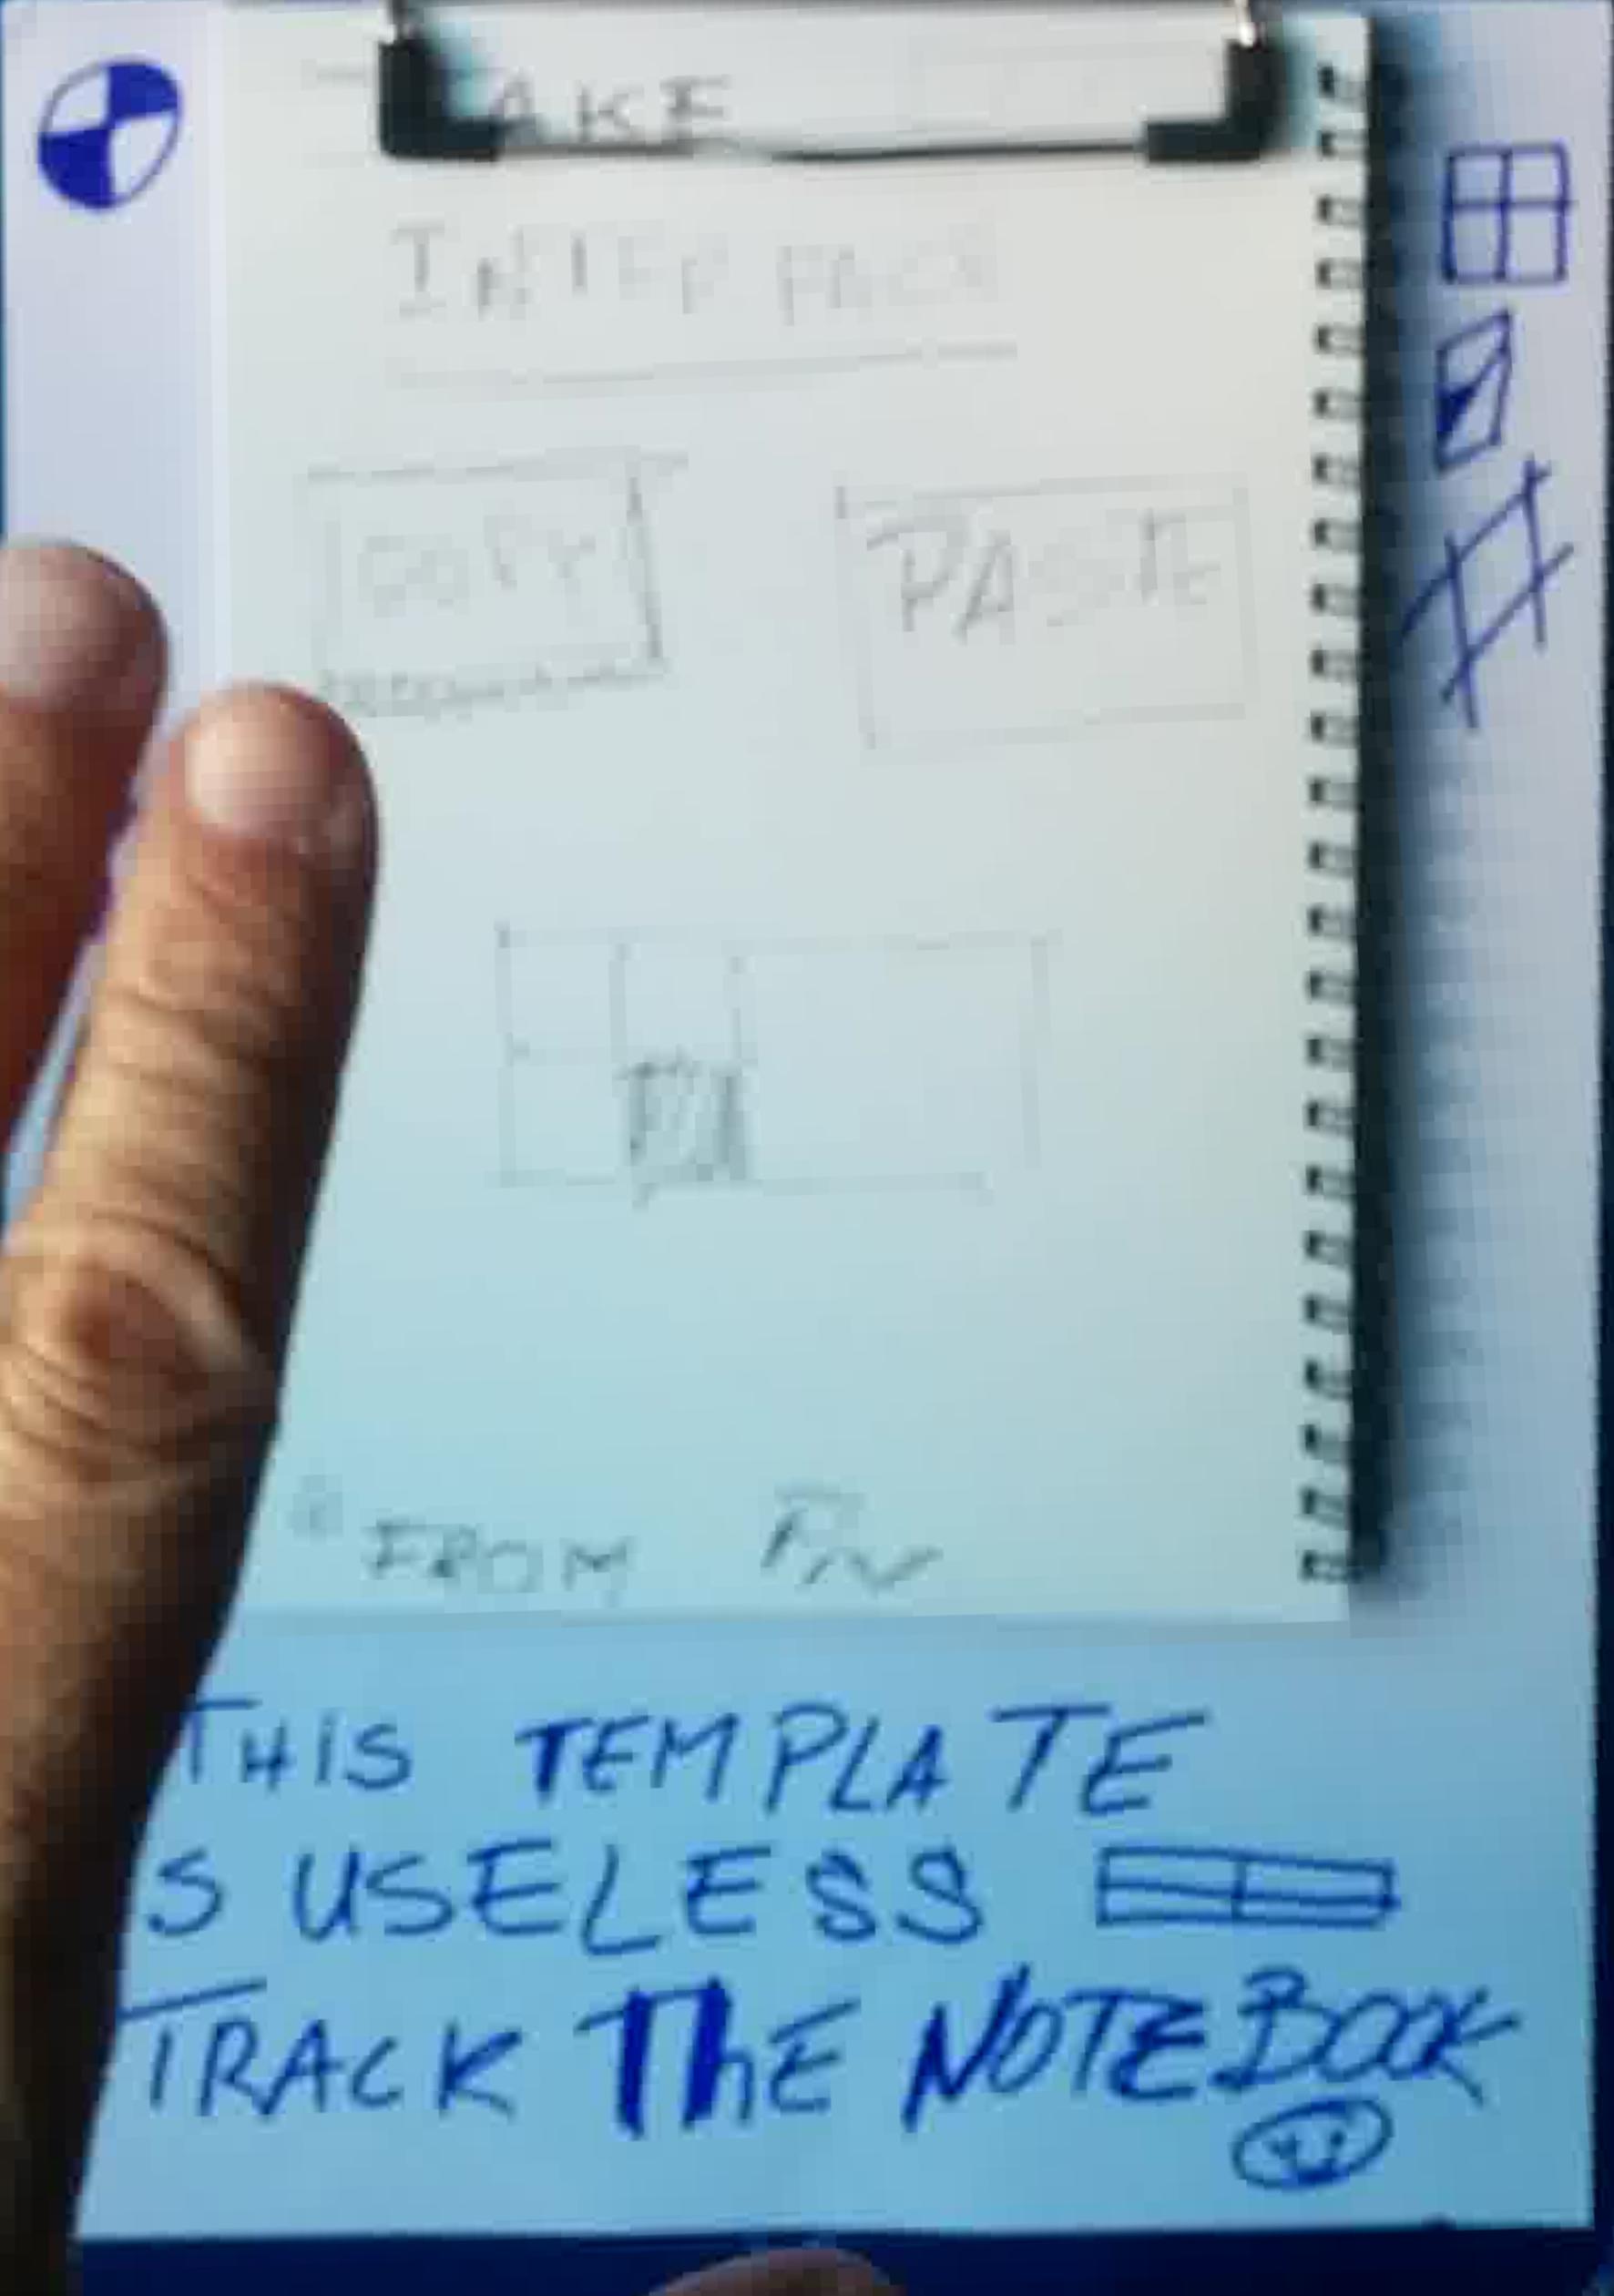 AKE
INTERFACE
COPY
PASTE
FROM
THIS TEMPLATE
S USELESS
TRACK THE NOTEBOOK